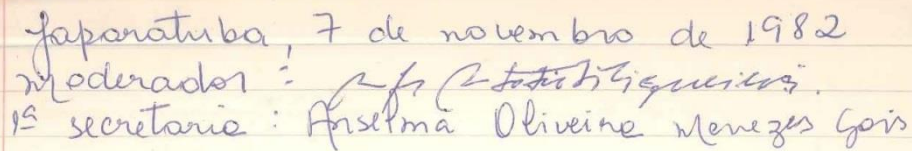 Japaratuba, 7 de novembro de 1982
Moderador:
1ª secretaria: Anselma Oliveira Menezes Gois